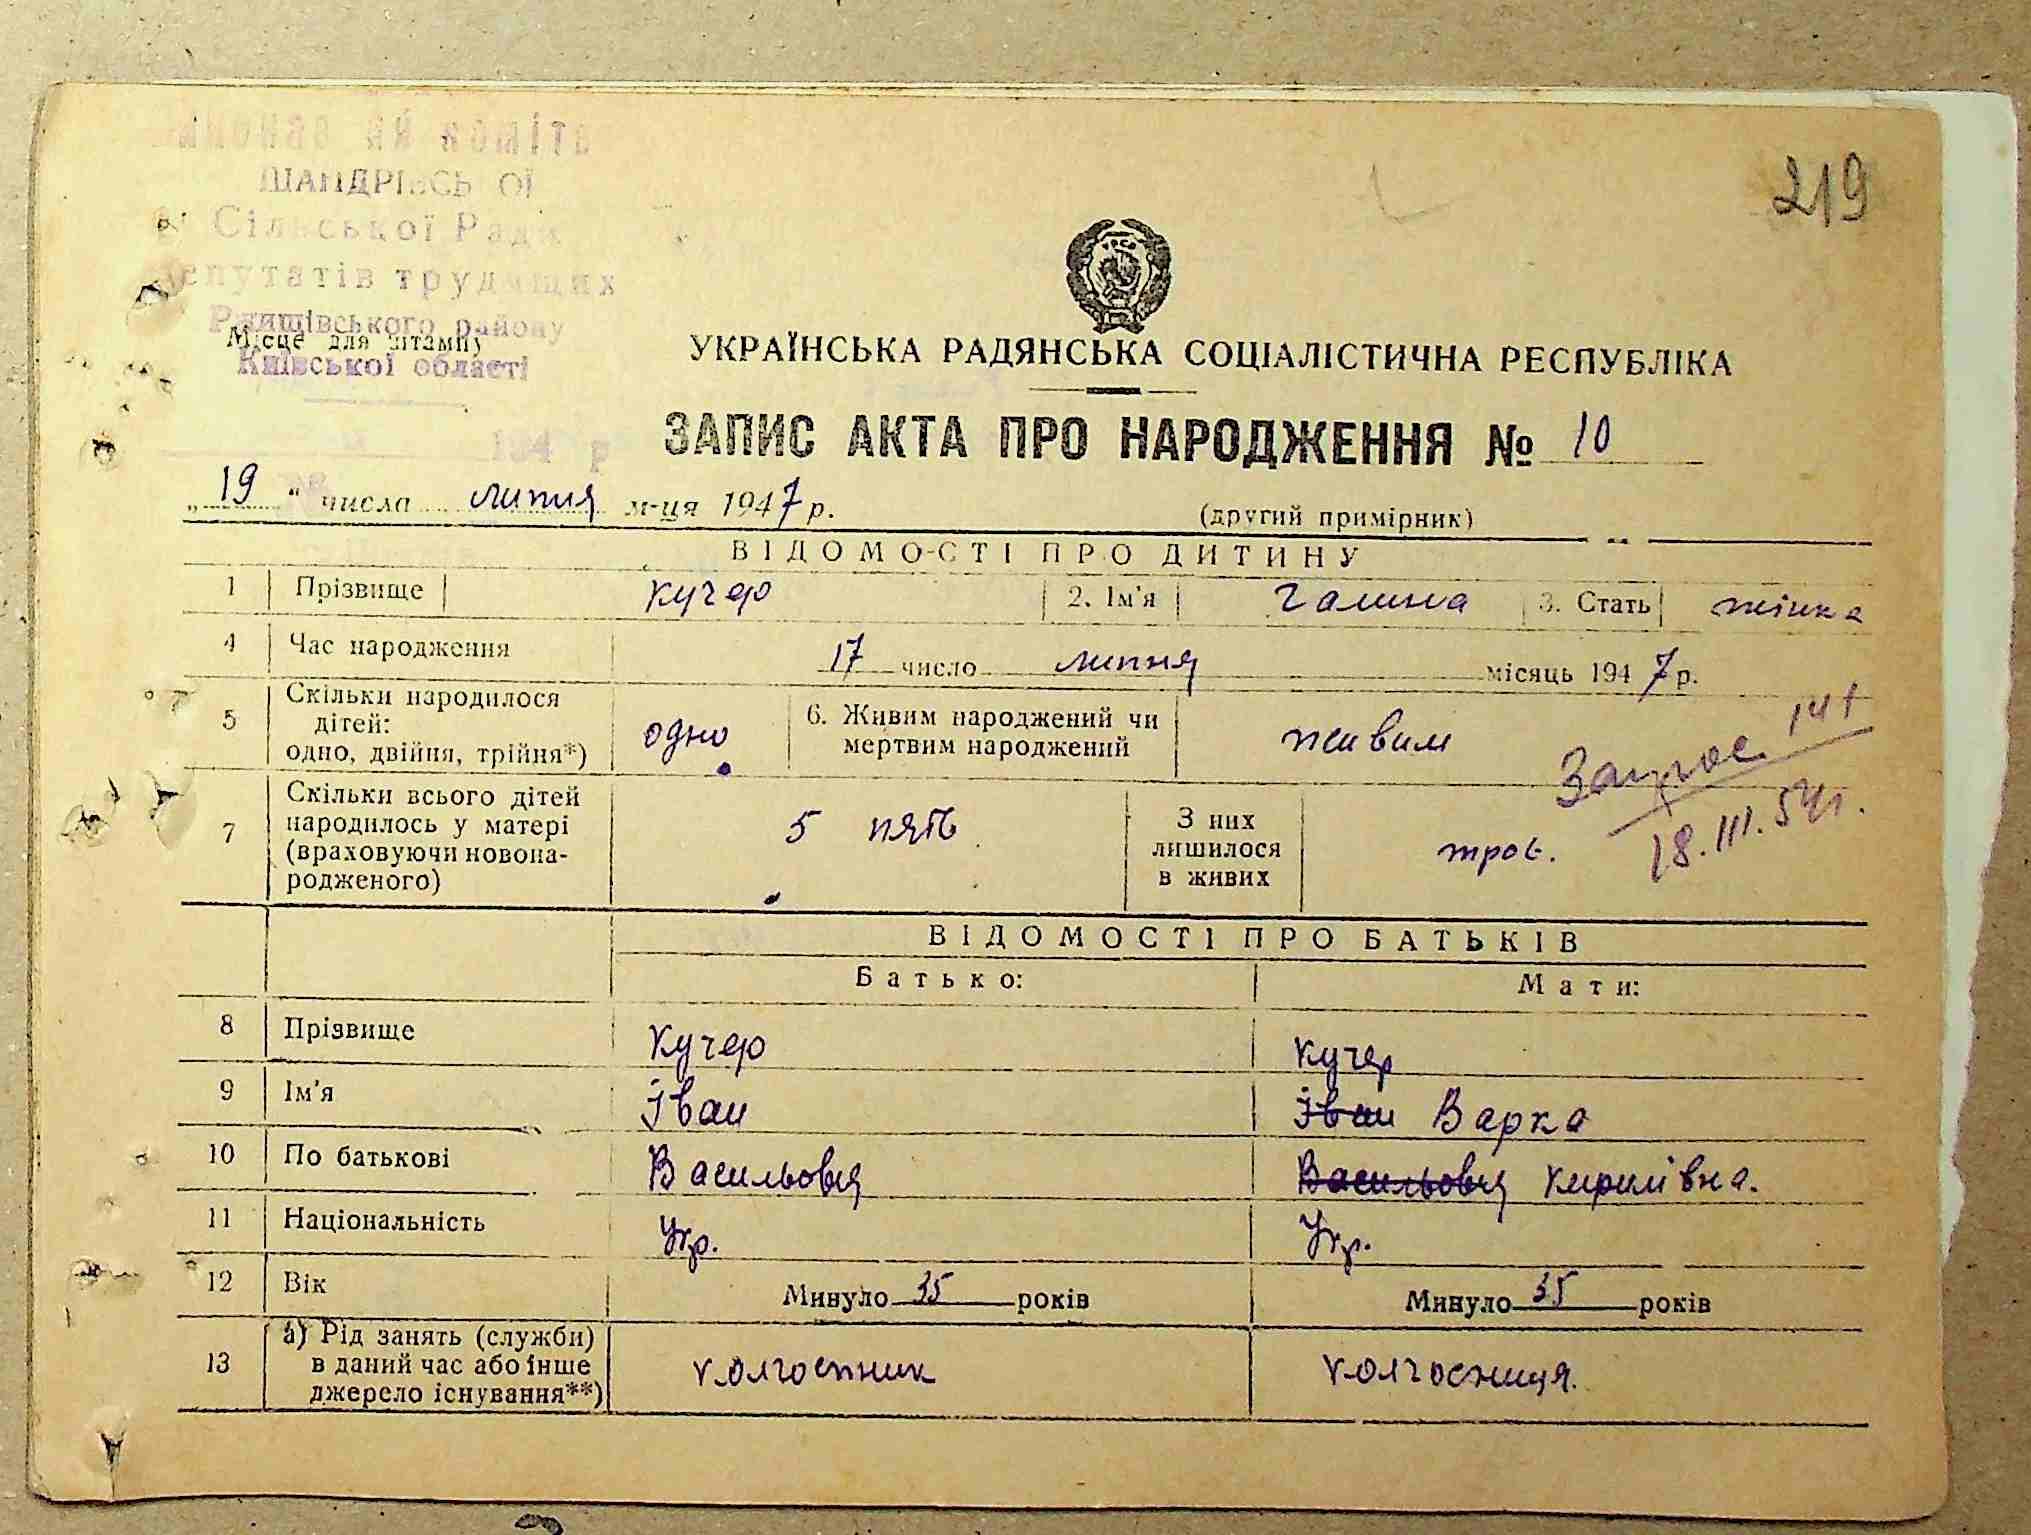 219
Сільської Ради
депутатів трудящих
Ржищівського району
Місце для штампу
Київської області
УРСР
УКРАЇНСЬКА РАДЯНСЬКА СОЦІАЛІСТИЧНА РЕСПУБЛІКА
ЗАПИС АКТА ПРО НАРОДЖЕННЯ № 10
„19“ числа липня м-ця 1947 р.
(другий примірник)
ВІДОМОСТІ ПРО ДИТИНУ
1 Прізвище Кучер 2. Ім'я Галина 3. Стать жінка
4 Час народження 17 число липня місяць 1947 р.
5 Скільки народилося дітей: одно, двійня, трійня*) одно 6. Живим народжений чи мертвим народжений живим
Запрос 141
18.III.54г.
7 Скільки всього дітей народилось у матері (враховуючи новонародженого) 5 пять З них лишилося в живих троє.
ВІДОМОСТІ ПРО БАТЬКІВ
Батько: Мати:
8 Прізвище Кучер Кучер
9 Ім'я Іван Іван Варка
10 По батькові Васильович Васильович Кирилівна.
11 Національність Укр. Укр.
12 Вік Минуло 35 років Минуло 35 років
13 а) Рід занять (служби) в даний час або інше джерело існування**) колгоспник колгосниця.